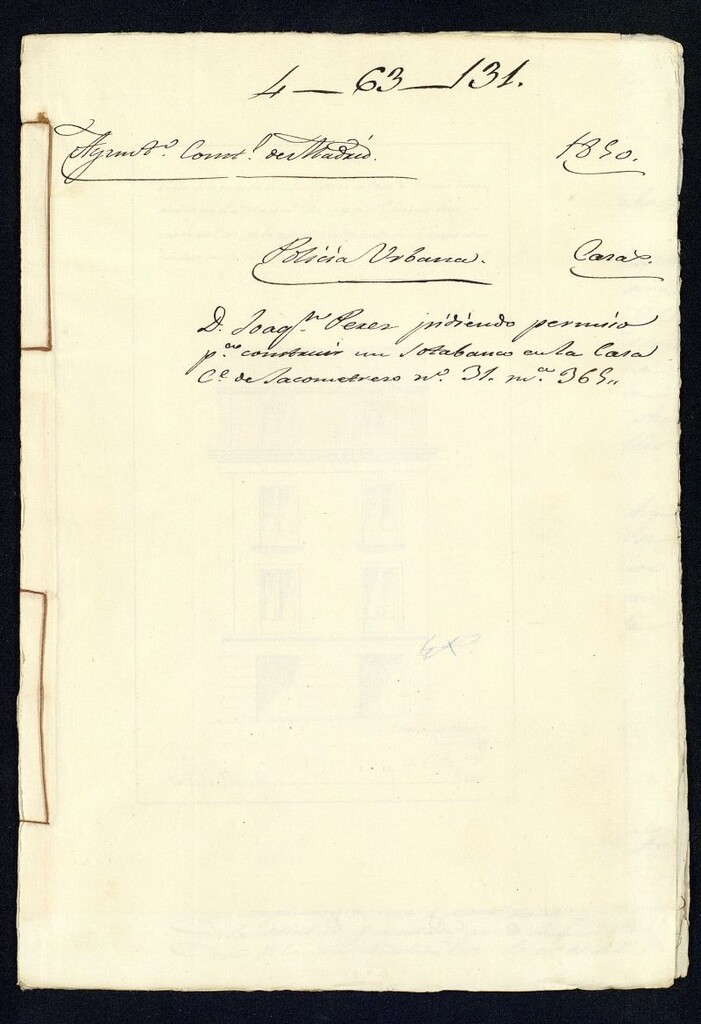 4 — 63 — 131.
Ayunt.º Const.l de Madrid. 1850.
Policía Urbana. Casas.
D. Joaq.n Perez pidiendo permiso
p.a construir un sotabanco en la Casa
C.e de Jacometrezo n.º 31. m.a 365,,